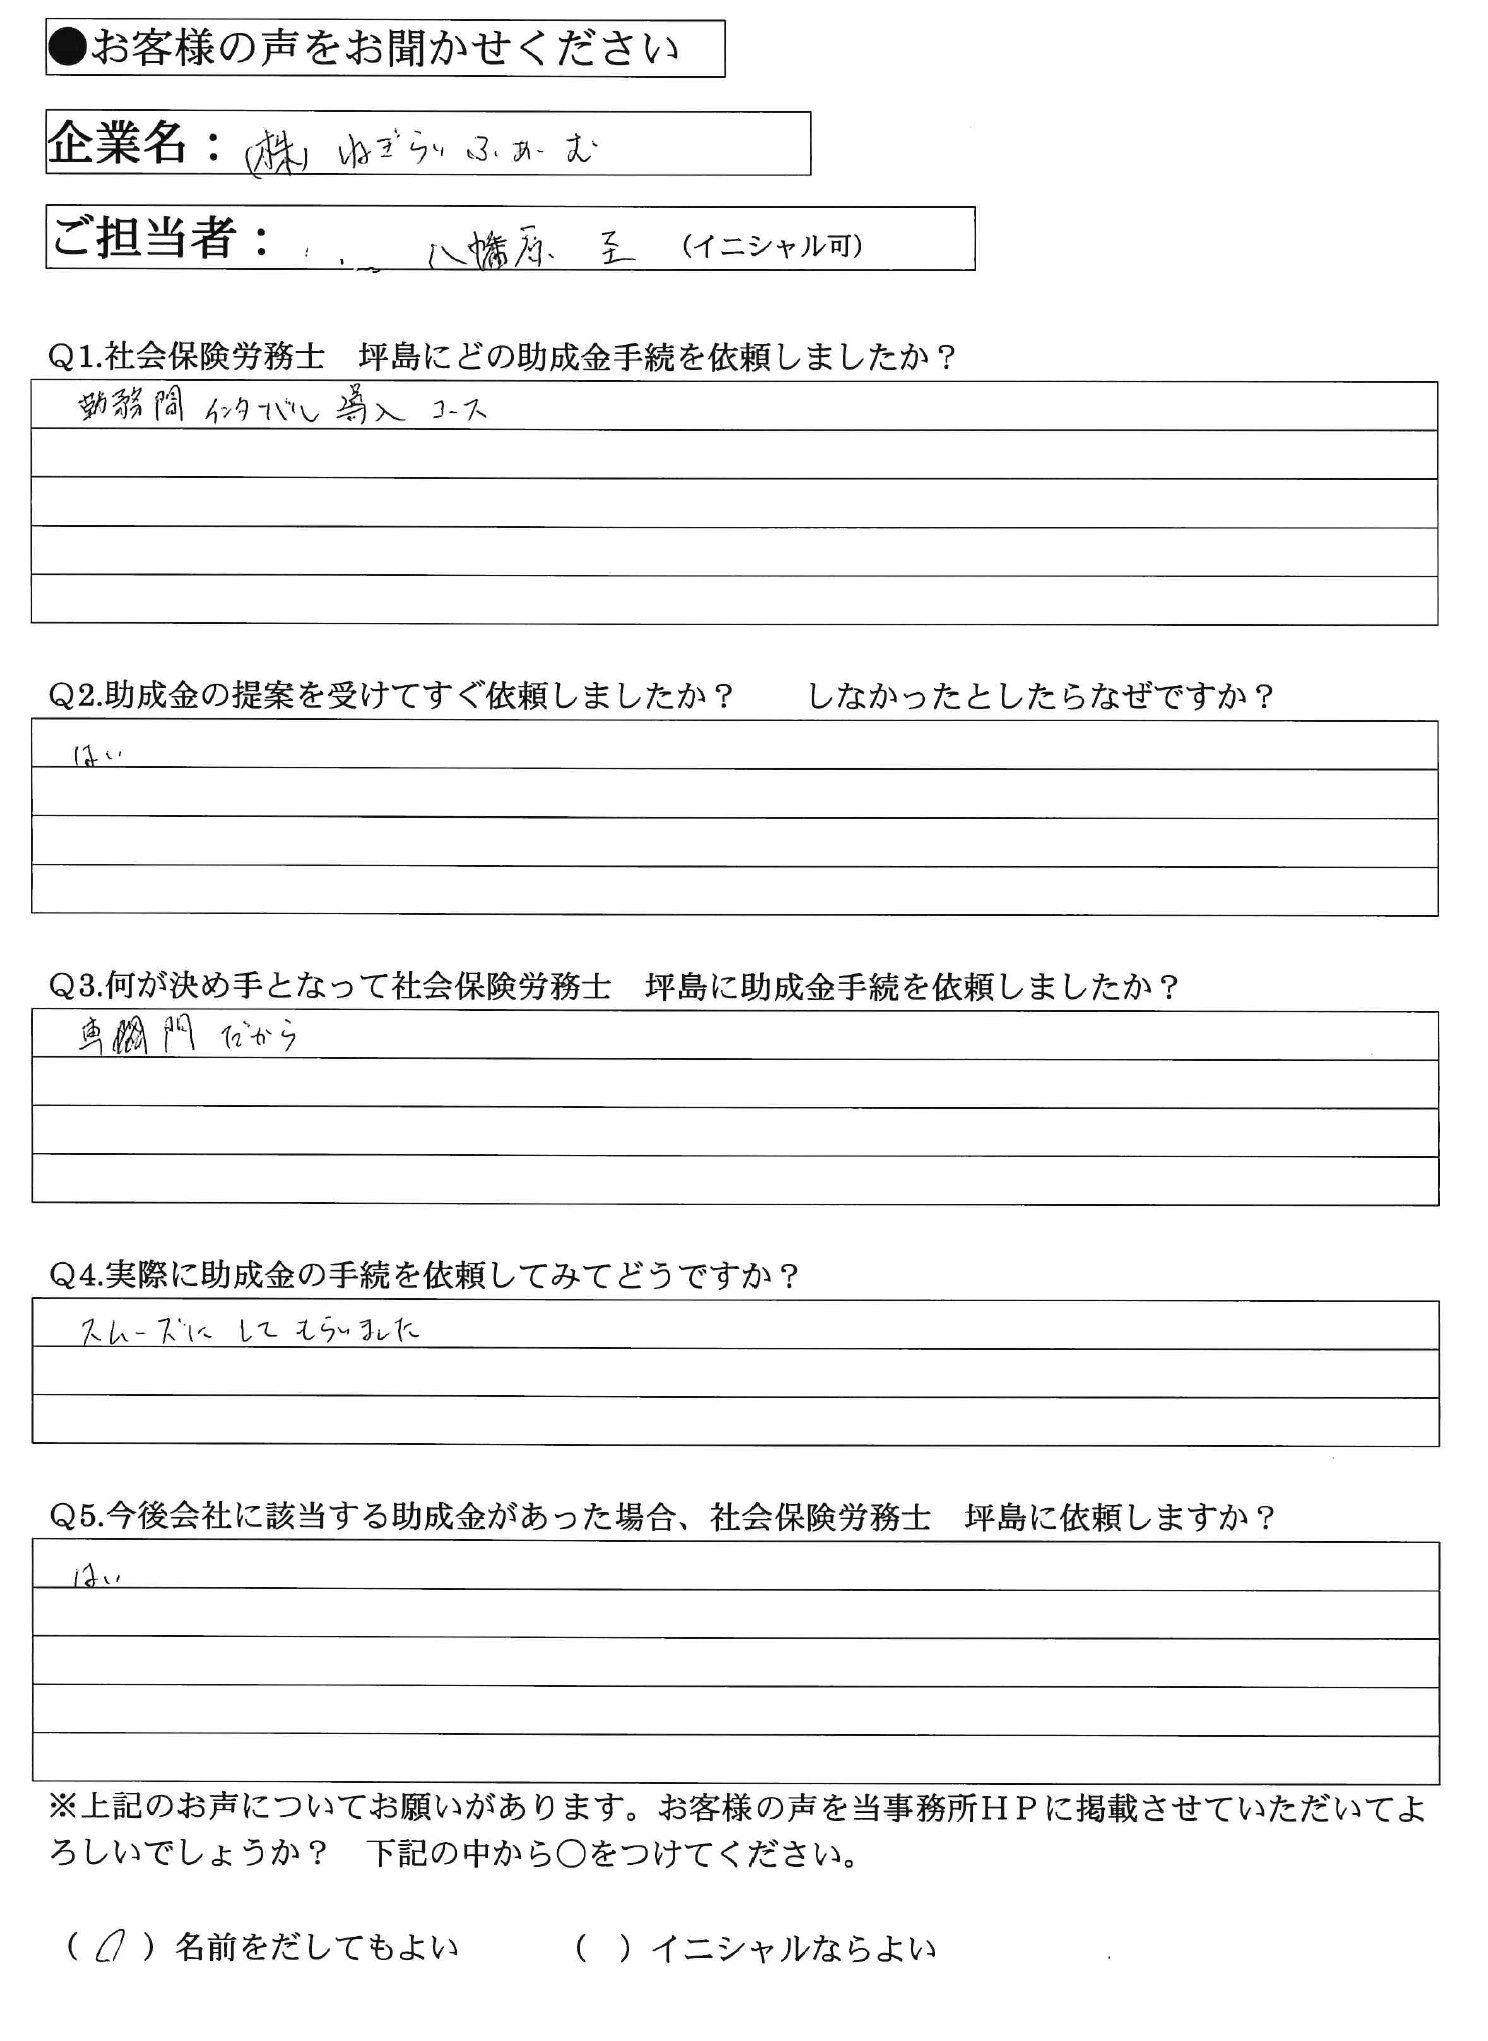 ●お客様の声をお聞かせください
企業名：(株) ねぎらいふぁーむ
ご担当者： 八幡原 至 （イニシャル可）
Q1.社会保険労務士　坪島にどの助成金手続を依頼しましたか？
勤務間インターバル導入コース
Q2.助成金の提案を受けてすぐ依頼しましたか？　　しなかったとしたらなぜですか？
はい
Q3.何が決め手となって社会保険労務士　坪島に助成金手続を依頼しましたか？
専門だから
Q4.実際に助成金の手続を依頼してみてどうですか？
スムーズにしてもらいました
Q5.今後会社に該当する助成金があった場合、社会保険労務士　坪島に依頼しますか？
はい
※上記のお声についてお願いがあります。お客様の声を当事務所ＨＰに掲載させていただいてよ
ろしいでしょうか？　下記の中から○をつけてください。
（ ○ ）名前をだしてもよい　　　（　）イニシャルならよい